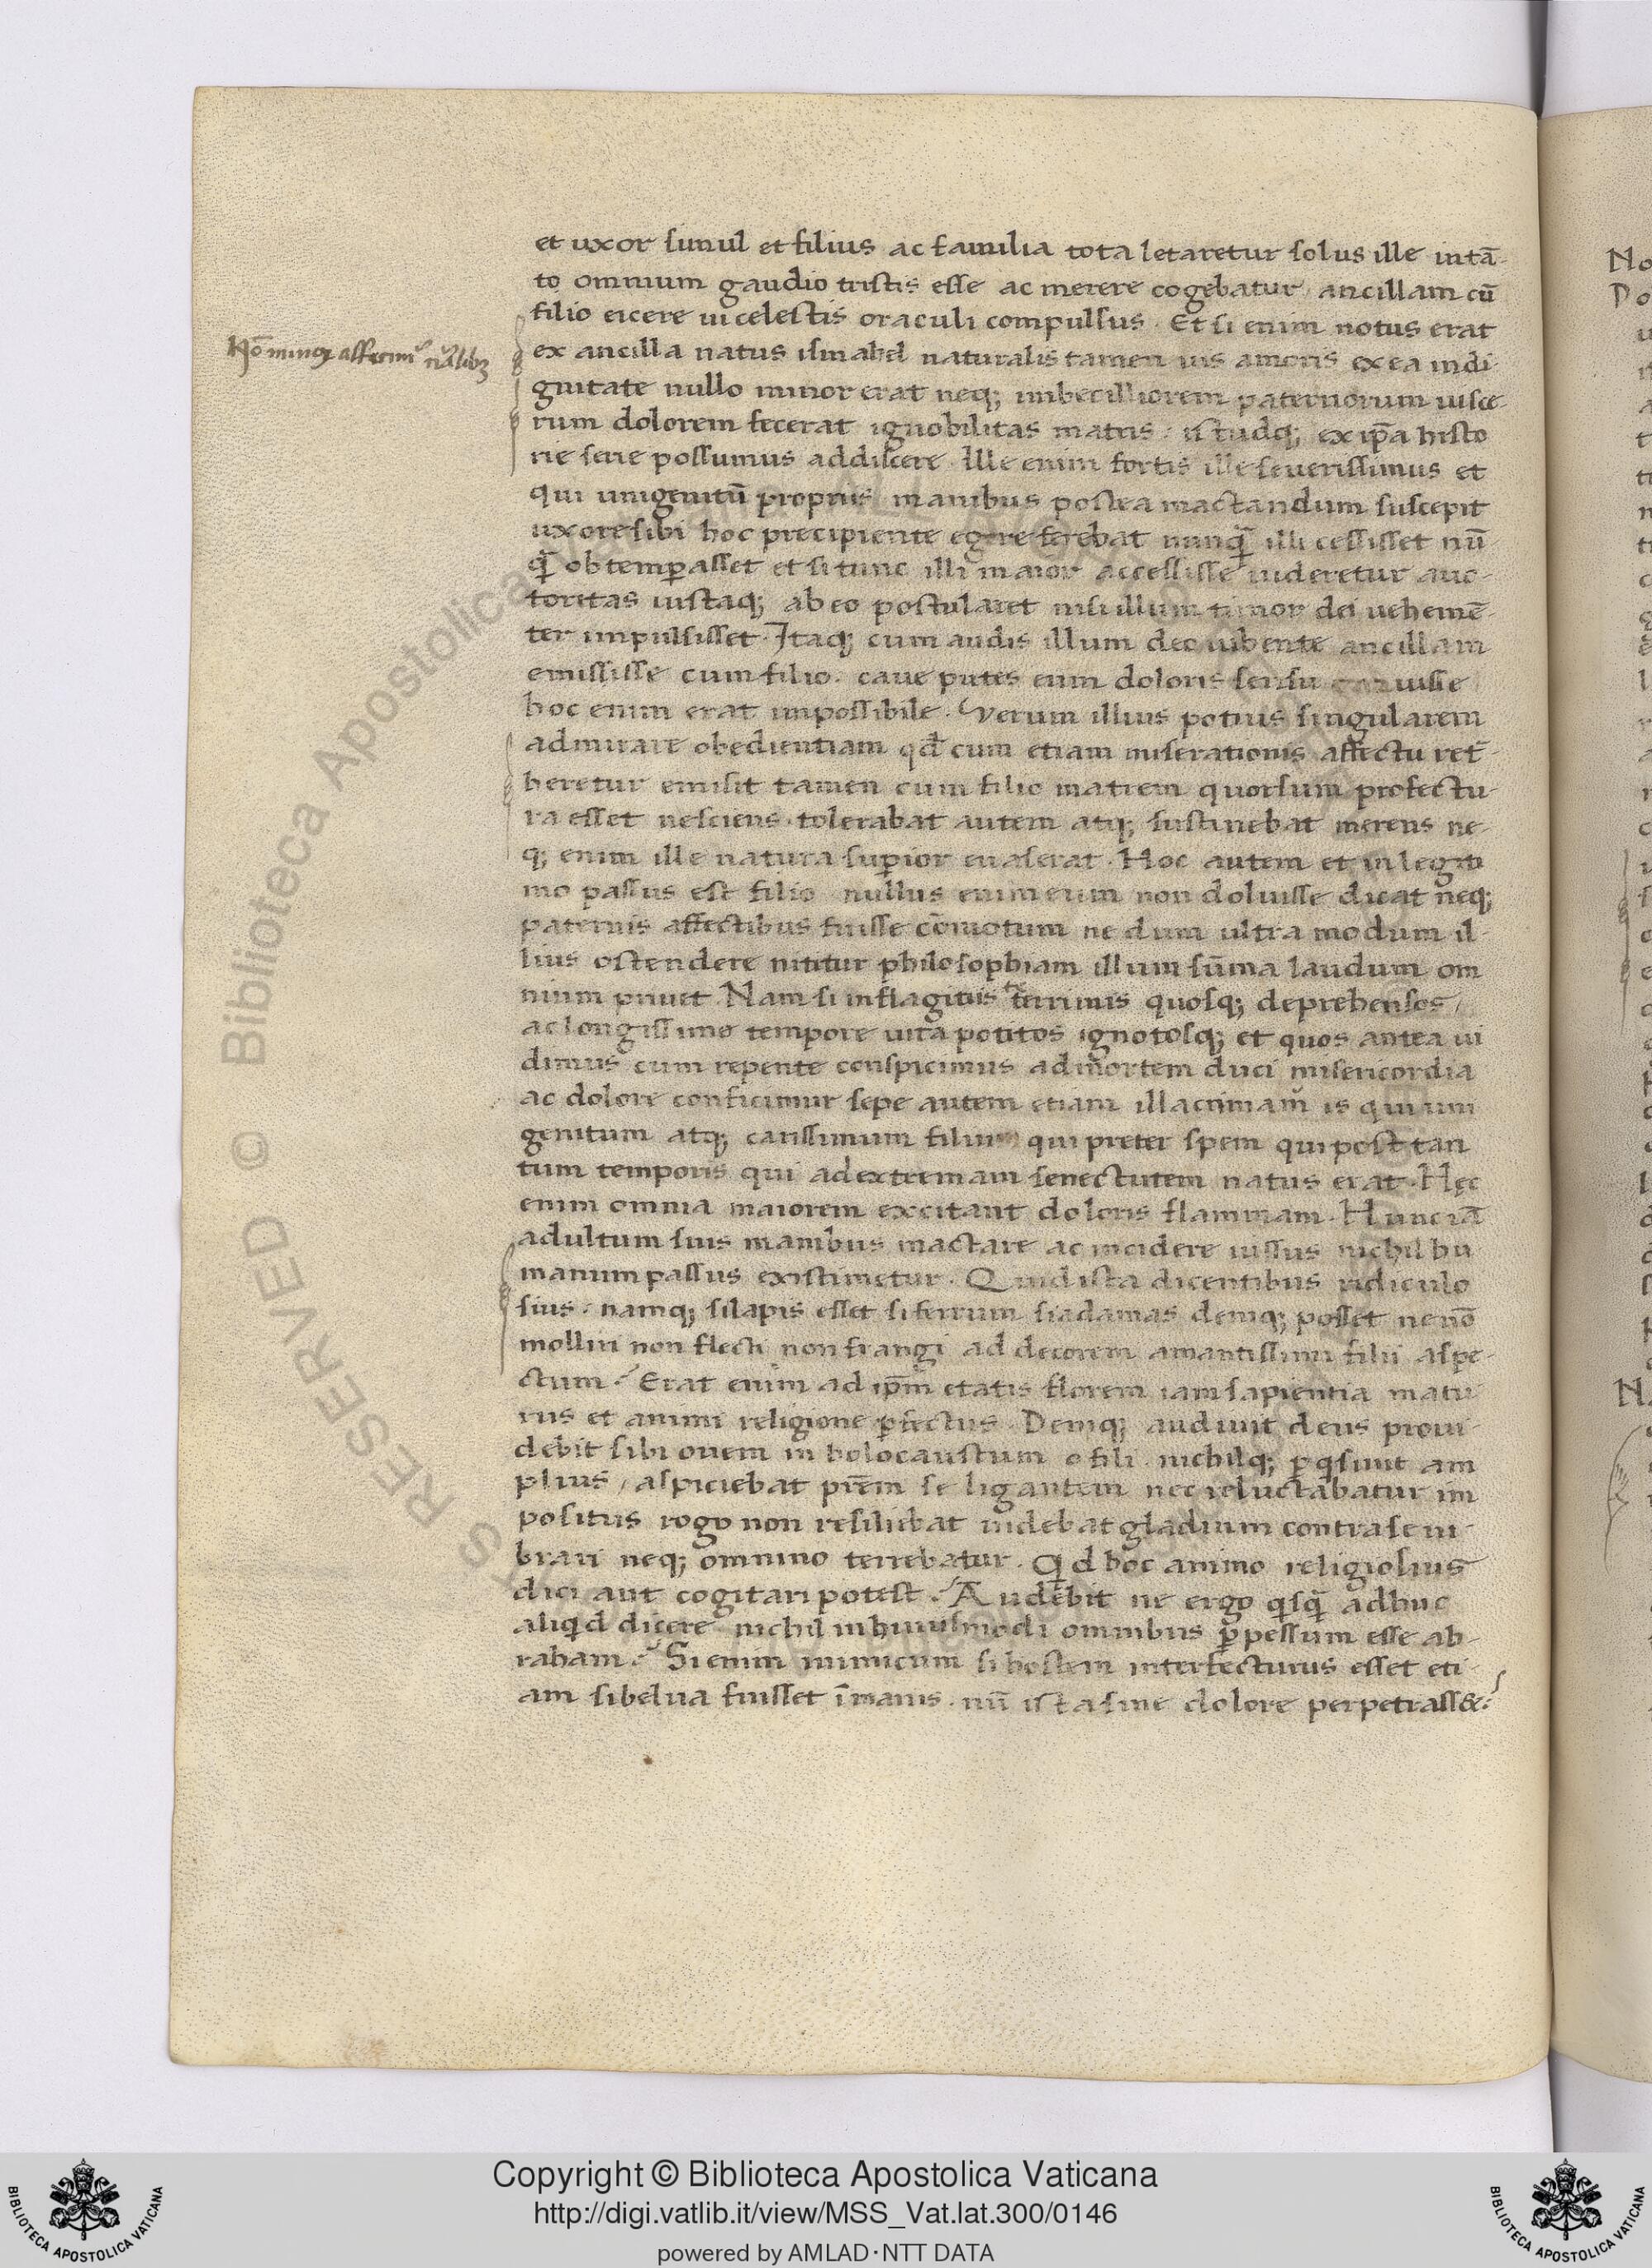 et uxor simul et filius ac familia tota letaretur solus ille in tā-
to omnium gaudio tristis esse ac merere cogebatur ancillam cū
filio eicere ui celestis oraculi compulsus. Et si enim notus erat
ex ancilla natus ismahel naturalis tamen uis amoris ex ea indi-
gnitate nullo minor erat neq; imbecilliorem paternorum uisce-
rum dolorem fecerat ignobilitas matris. istudq; ex ip̄a histo
rie serie possumus addiscere. Ille enim fortis ille seuerissimus et
qui unigenitū propriis manibus postea mactandum suscepit
uxore sibi hoc precipiente egere ferebat nunq̄ illi cessisset nū
q̄ obtemꝑasset et si tunc illi maior accessisse uideretur auc-
toritas iustaq; ab eo postularet nisi illum timor dei uehemē-
ter impulsisset. Itaq; cum audis illum deo iubente ancillam
emississe cum filio. caue putes eum doloris sensu caruisse
hoc enim erat impossibile. Verum illius potius singularem
admirare obedientiam qd̄ cum etiam miserationis affectu reti-
heretur emisit tamen cum filio matrem quorsum profectu-
ra esset nesciens. tolerabat autem atq; sustinebat merens ne-
q; enim ille natura suꝑior euaserat. Hoc autem et in legiti
mo passus est filio nullus enim eum non doluisse dicat neq;
paternis affectibus fuisse cōmotum ne dum ultra modum il-
lius ostendere nititur philosophiam illum sūma laudum om
nium priuet. Nam si in flagitiis terrimis quosq; deprehensos,
ac longissimo tempore uita potitos ignotosq; et quos antea ui
dimus cum repente conspicimus ad mortem duci misericordia
ac dolore conficimur sepe autem etiam illacrimam̄ is qui uni
genitum atq; carissimum filium qui preter spem qui post tan
tum temporis qui ad extremam senectutem natus erat. Hęc
enim omnia maiorem excitant doloris flammam. Hunc iā
adultum suis manibus mactare ac incidere iussus nichil hu
manum passus existimetur. Quid ista dicentibus ridiculo
sius. namq; si lapis esset si ferrum si adamas deniq; posset ne nō
molliri non flecti non frangi ad decorem amantissimi filii aspe-
ctum? Erat enim ad ip̄m etatis florem iam sapientia matu
rus et animi religione ꝑfectus. Deniq; audiuit deus proui-
debit sibi ouem in holocaustum o fili nichilq; ꝑq̇siuit am
plius, aspiciebat prēm se ligantem nec reluctabatur im
positus rogo non resiliebat uidebat gladium contra se ui-
brari neq; omnino terrebatur. Qd hoc animo religiosius
dici aut cogitari potest? Audebit ne ergo q̇sq̄ adhuc
aliq̇d dicere nichil in huiusmodi omnibus ꝑpessum esse ab-
raham? Si enim inimicum si hostem interfecturus esset eti-
am si belua fuisset īmanis. nū ista sine dolore perpetrass&?
Copyright © Biblioteca Apostolica Vaticana
http://digi.vatlib.it/view/MSS_Vat.lat.300/0146
powered by AMLAD·NTT DATA
BIBLIOTECA APOSTOLICA VATICANA
BIBLIOTECA APOSTOLICA VATICANA